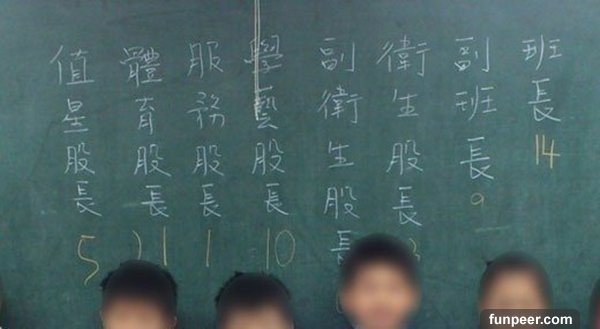 班長 14
副班長 9
衛生股長
副衛生股長
學藝股長 10
服務股長 1
體育股長 21
值星股長 5
funpeer.com